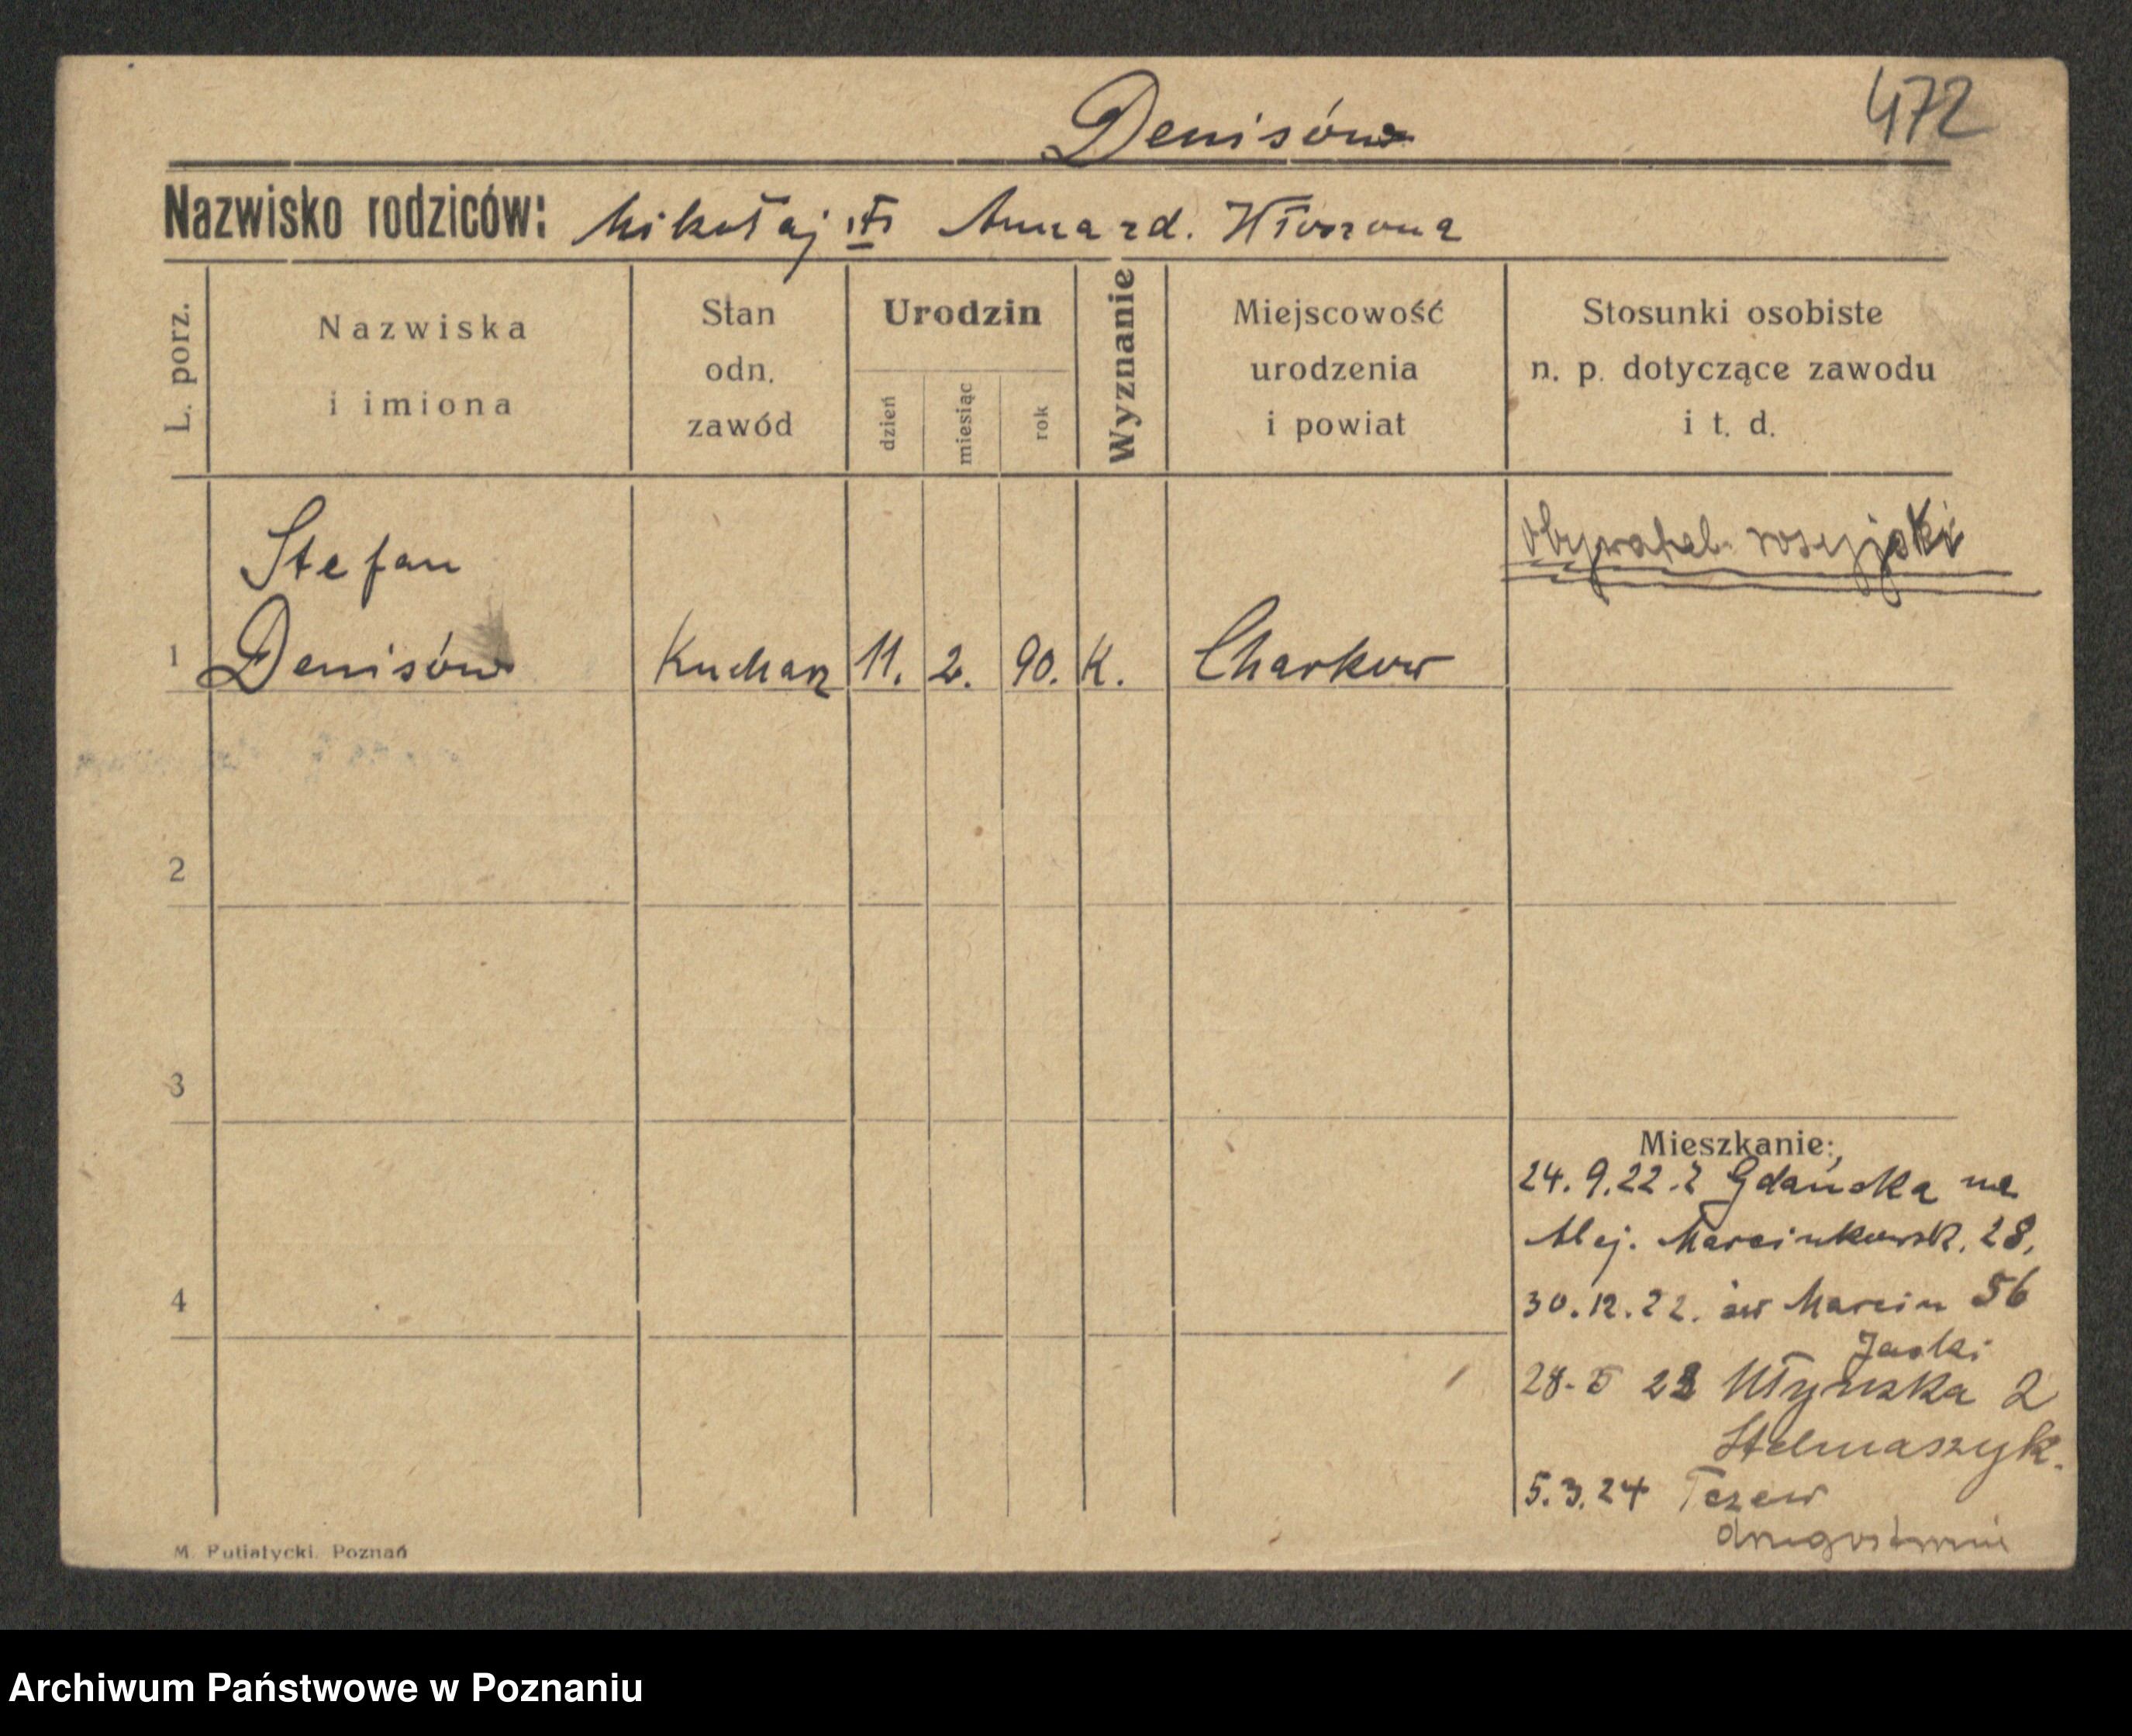 Denisów
472
Nazwisko rodziców: Mikołaj Anna rd.
L. porz.
Nazwiska
i imiona
Stan
odn.
zawód
Urodzin
dzień
miesiąc
rok
Wyznanie
Miejscowość
urodzenia
i powiat
Stosunki osobiste
n. p. dotyczące zawodu
i t. d.
obywatel rosyjski
Stefan
1 Denisów Kucharz 11. 2. 90. K. Charkow
2
3
4
Mieszkanie:
24. 9. 22. z Gdańska na
Alej. Marcinkowsk. 28,
30. 12. 22. św Marcin 56
Jaski
28. 23 2
Stelmaszyk.
5. 3. 24 Tczew
M. Putiatycki. Poznań
Archiwum Państwowe w Poznaniu